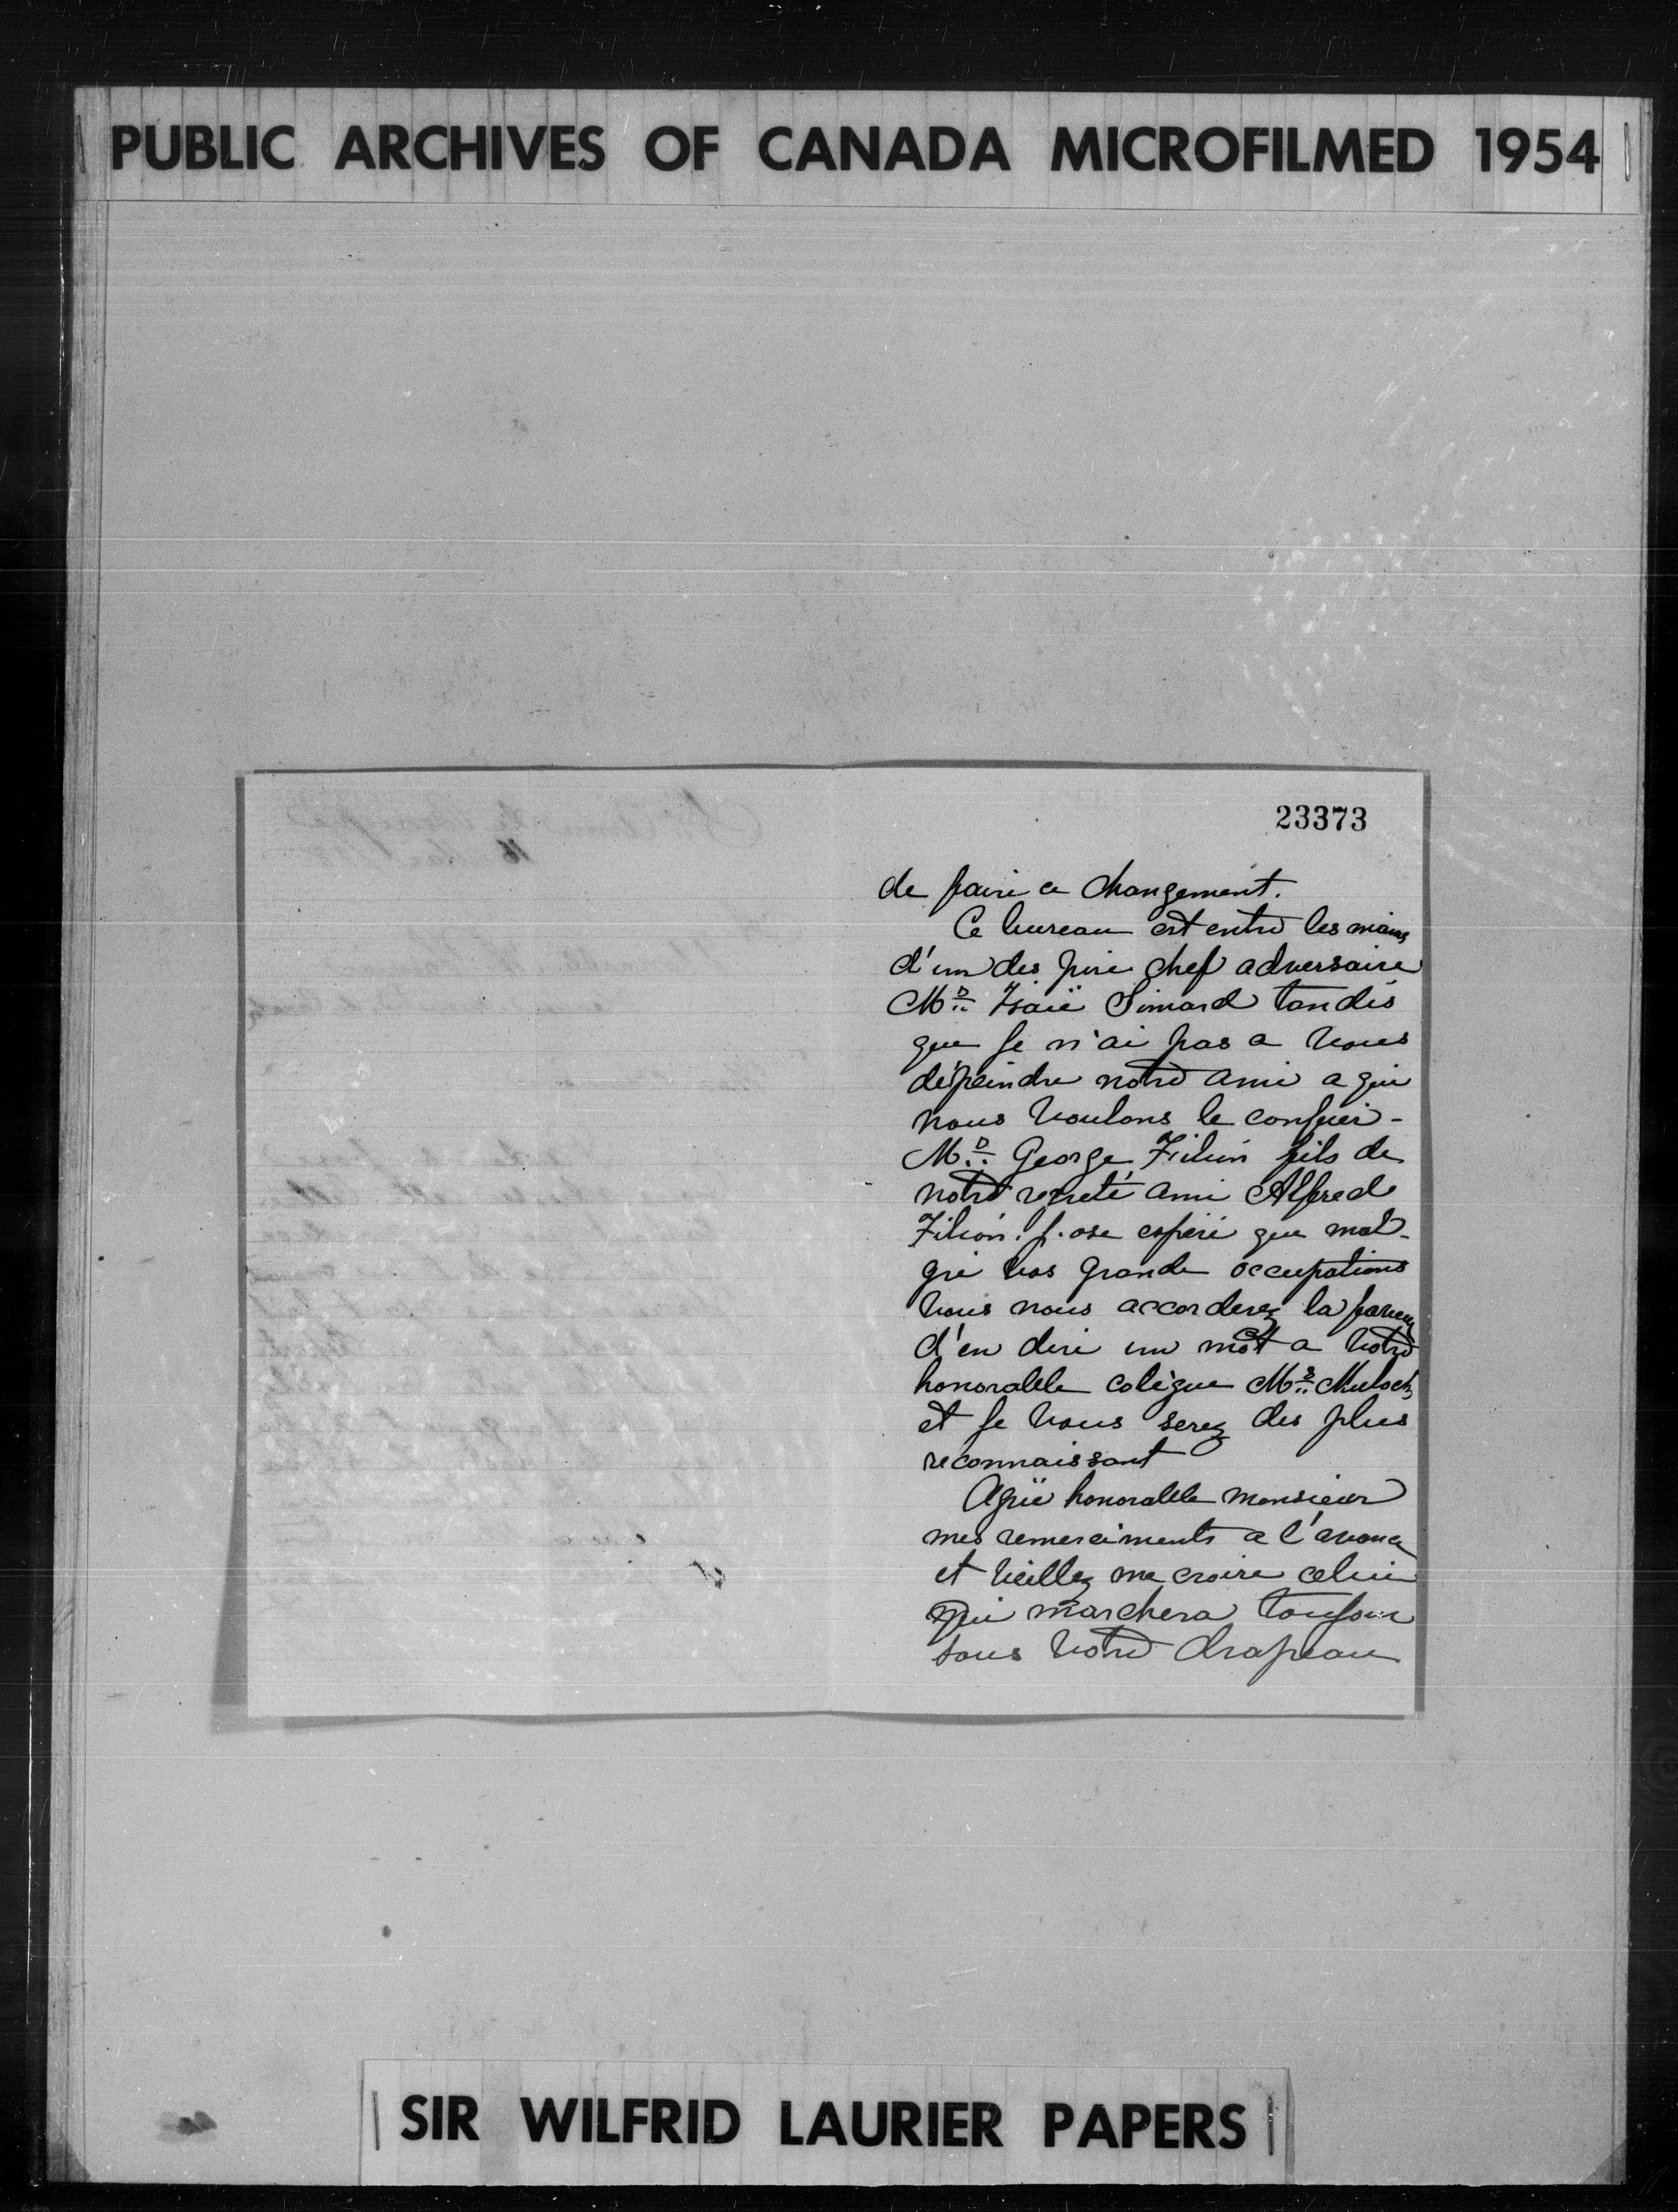 PUBLIC ARCHIVES OF CANADA MICROFILMED 1954
23373
de faire ce changement.
Ce bureau est entre les mains
d'un des pire chef adversaire
Mr Isaïe Simard tandis
que je n'ai pas a vous
dépeindre notre ami a qui
nous voulons le confier -
Mr George Filion fils de
notre regreté ami Alfred
Filion. j'ose espéré que mal-
gré vos grande occupations
vous nous accorderez la faveur
d'en dire un mot a votre
honorable colègue Mr Mulock
et je vous serez des plus
reconnaissant
Agrée honorable monsieur
mes remerciments a l'avance
et veillez me croire celui
qui marchera toujour
sous votre drapeau
SIR WILFRID LAURIER PAPERS